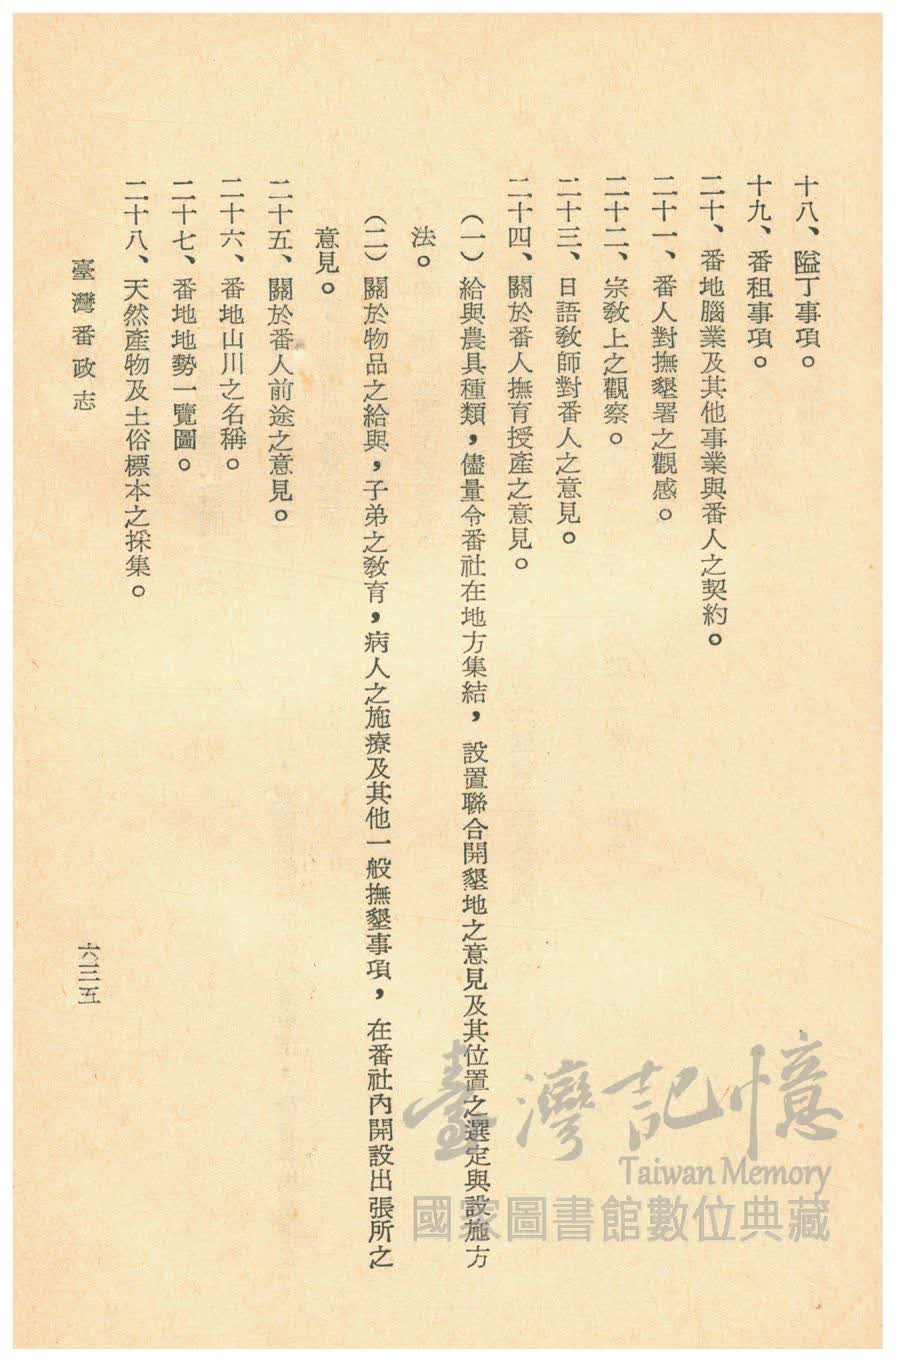 十八、隘丁事項。
十九、番租事項。
二十、番地腦業及其他事業與番人之契約。
二十一、番人對撫墾署之觀感。
二十二、宗教上之觀察。
二十三、日語教師對番人之意見。
二十四、關於番人撫育授產之意見。
(一)給與農具種類，儘量令番社在地方集結，設置聯合開墾地之意見及其位置之選定與設施方
法。
(二)關於物品之給與，子弟之教育，病人之施療及其他一般撫墾事項，在番社內開設出張所之
意見。
二十五、關於番人前途之意見。
二十六、番地山川之名稱。
二十七、番地地勢一覽圖。
二十八、天然產物及土俗標本之採集。
臺灣番政志
六三五
臺灣記憶
Taiwan Memory
國家圖書館數位典藏